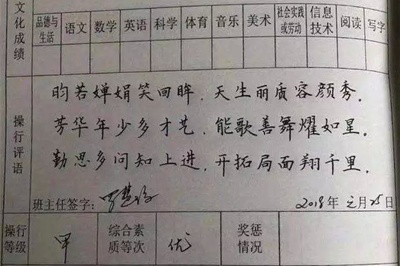 文化成绩 品德与生活 语文 数学 英语 科学 体育 音乐 美术 社会实践或劳动 信息技术 阅读 写字
操行评语
昀若婵娟笑回眸，天生丽质容颜秀。
芳华年少多才艺，能歌善舞耀如星。
勤思多问知上进，开拓局面翔千里。
班主任签字： 2019年元月25日
操行等级 甲 综合素质等次 优 奖惩情况